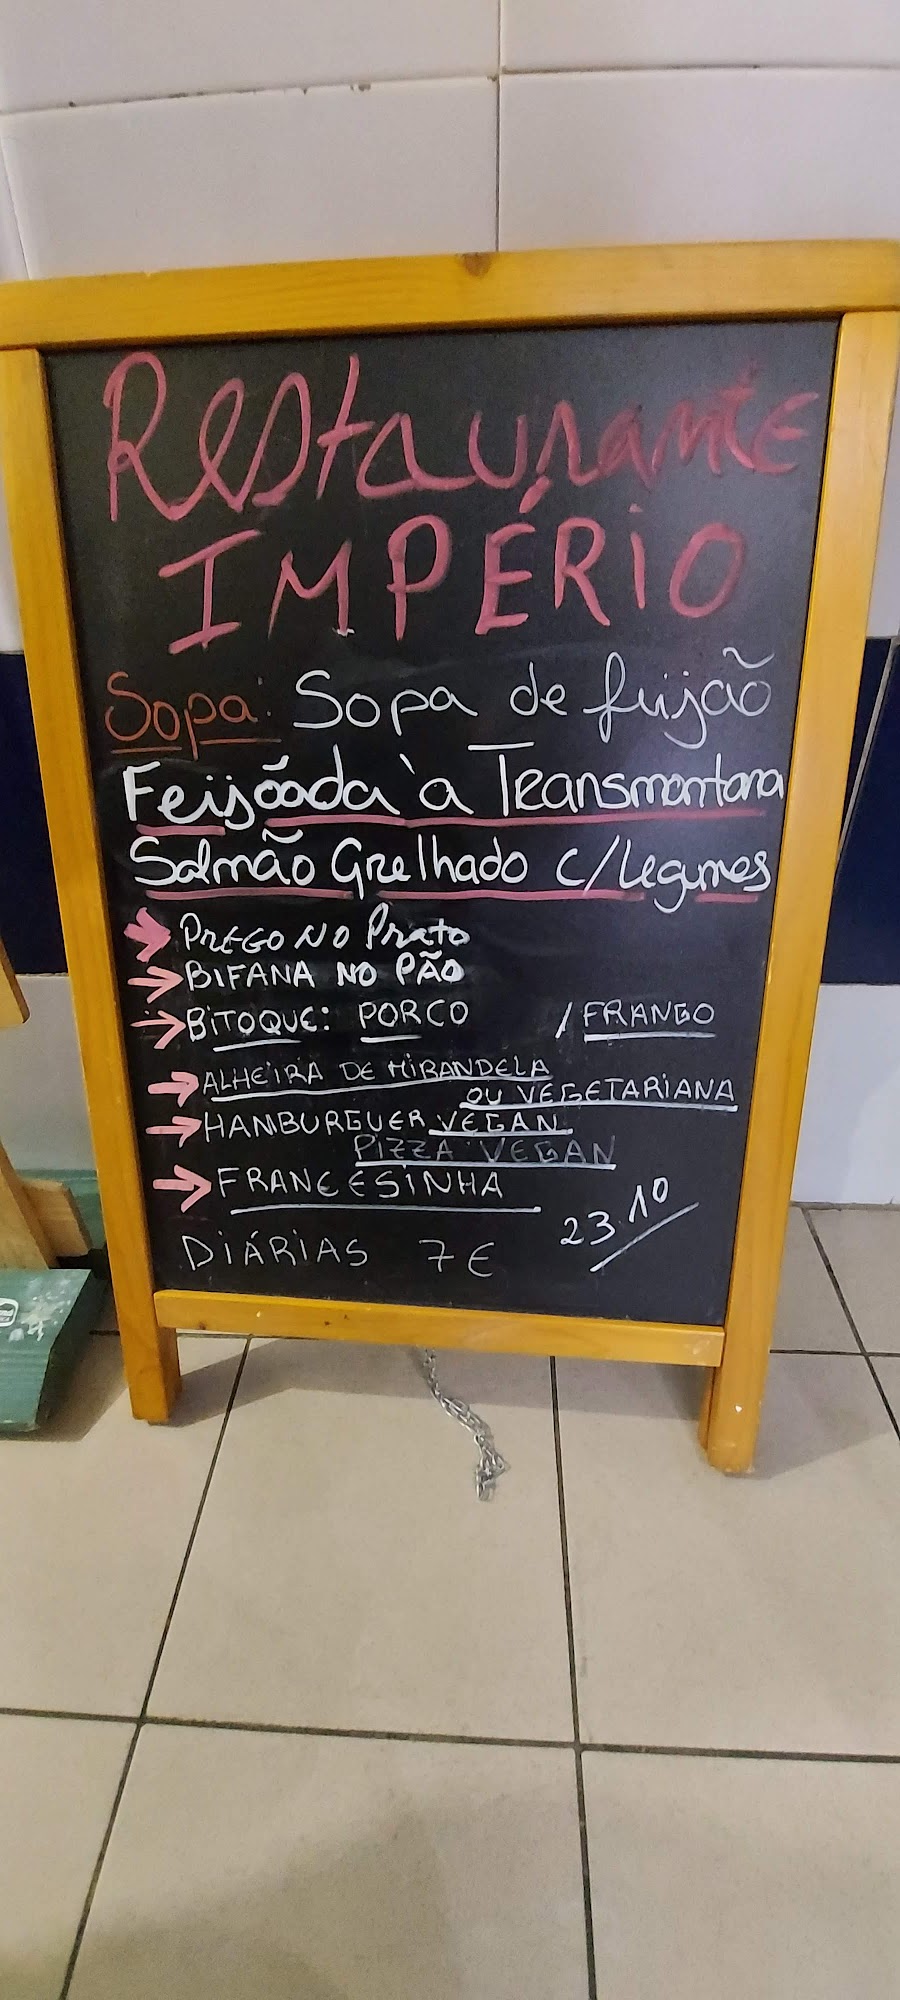 Restaurante
IMPÉRIO
Sopa: Sopa de feijão
Feijõada à Transmontana
Salmão Grelhado c/Legumes
PREGO NO Prato
BIFANA NO PÃO
BITOQUE: PORCO / FRANGO
ALHEIRA DE MIRANDELA
OU VEGETARIANA
HAMBURGUER VEGAN
PIZZA VEGAN
FRANCESINHA
23.10
DIÁRIAS 7€